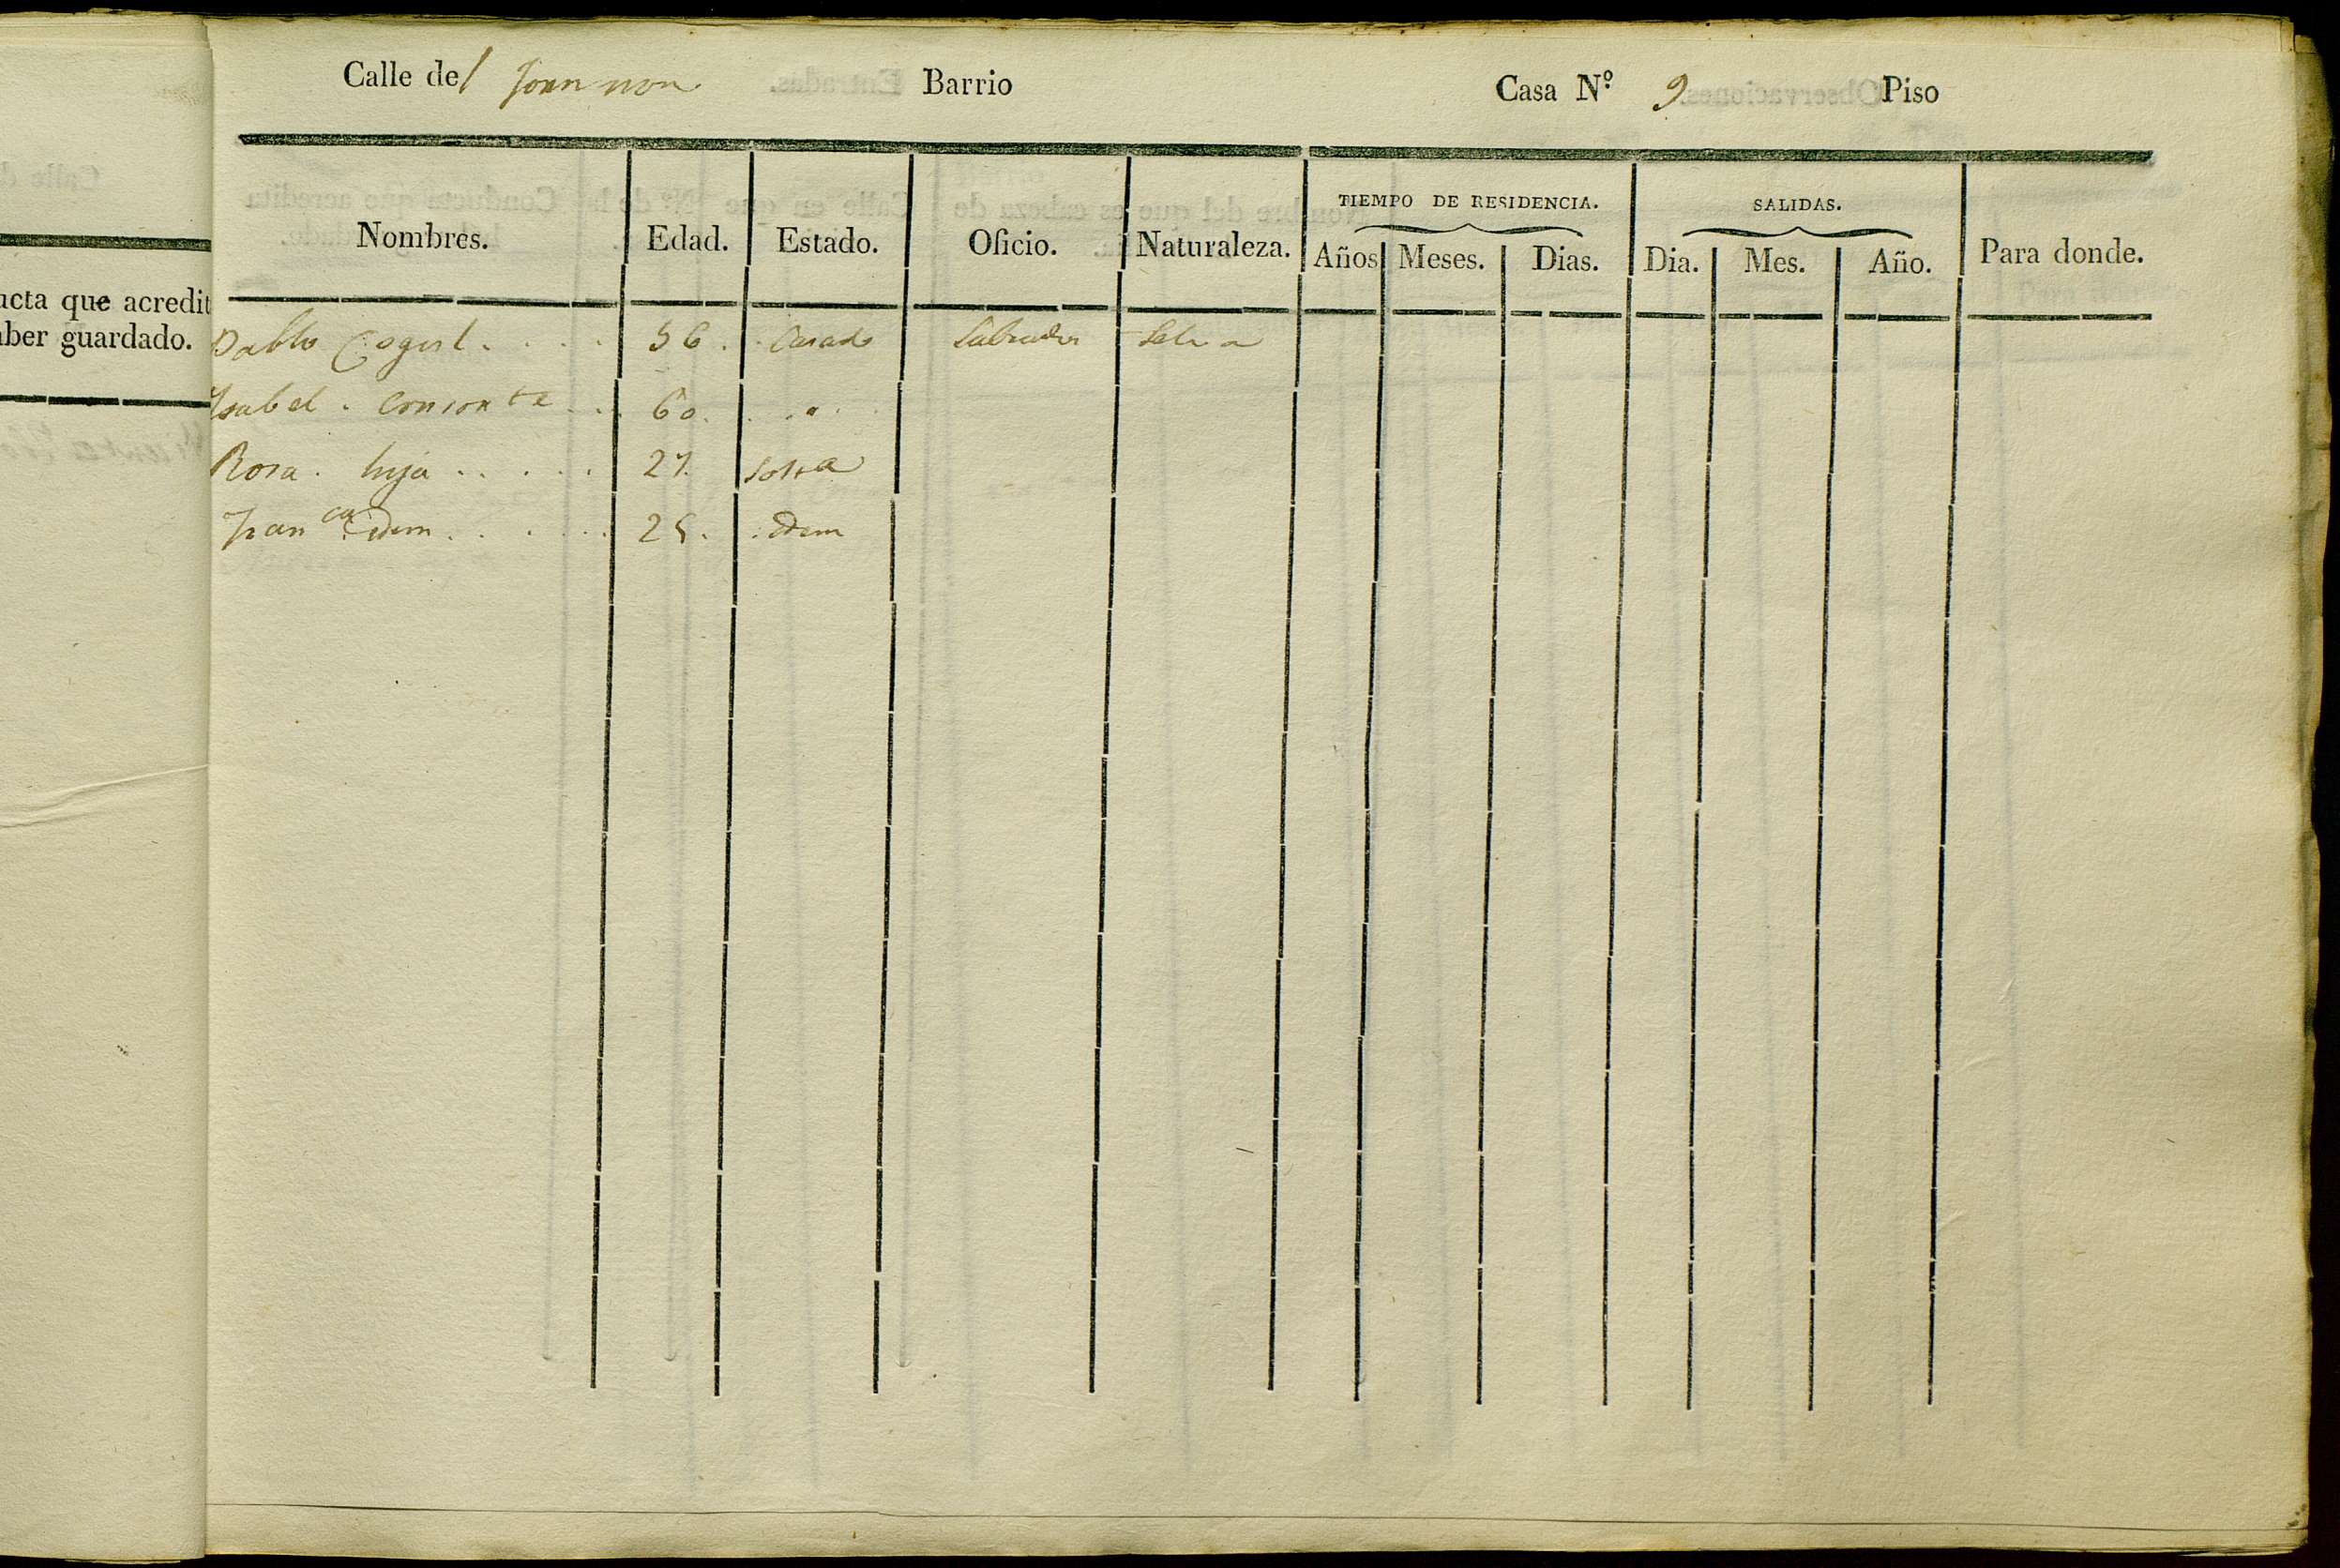 Calle del Forn nou Barrio Casa N.º 9 Piso
Nombres. Edad. Estado. Oficio. Naturaleza. TIEMPO DE RESIDENCIA. SALIDAS. Para donde.
Años Meses. Dias. Dia. Mes. Año.
Pablo 56. Casado Labrador Selva
Isabel. consorte 60. "
Rosa. hija 27. Solta
Fran.ca idem 25. idem
ucta que acredit
ber guardado.